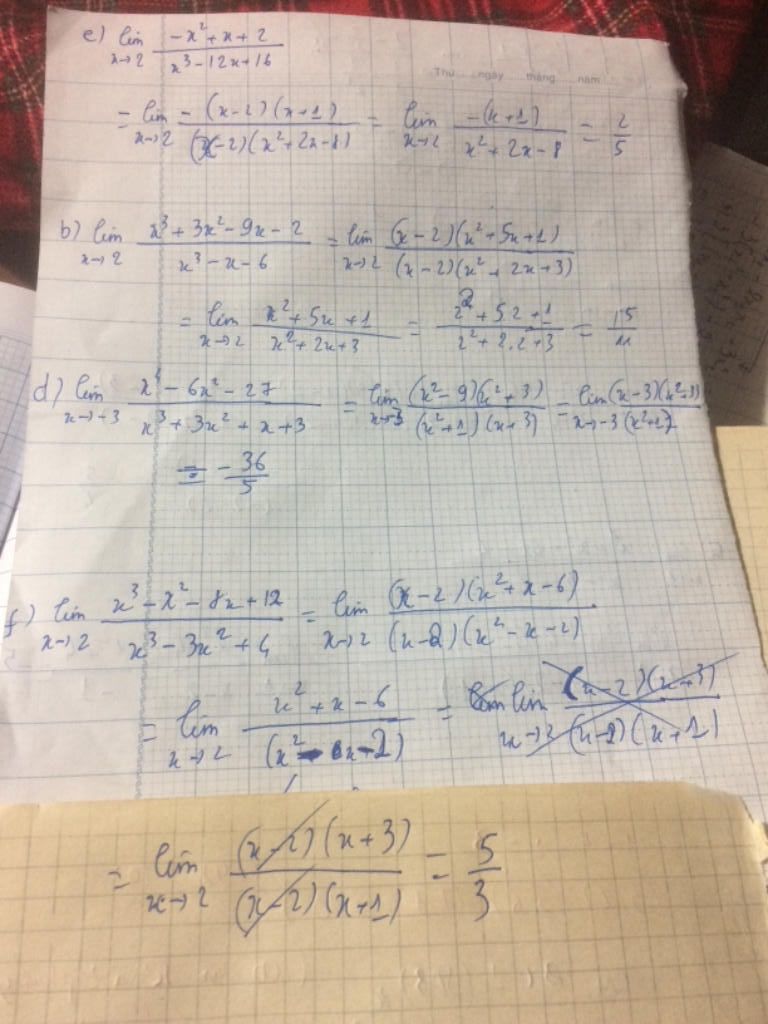 e) lim x→2 (-x² + x + 2)/(x³ - 12x + 16)
Thứ ngày tháng năm
= lim x→2 (-(x-2)(x+1))/((x-2)(x²+2x-8)) = lim x→2 (-(x+1))/(x²+2x-8) = 2/5
b) lim x→2 (x³ + 3x² - 9x - 2)/(x³ - x - 6) = lim x→2 ((x-2)(x²+5x+1))/((x-2)(x²+2x+3))
= lim x→2 (x²+5x+1)/(x²+2x+3) = (2²+5.2+1)/(2²+2.2+3) = 15/11
d) lim x→-3 (x⁴ - 6x² - 27)/(x³ + 3x² + x + 3) = lim x→-3 ((x²-9)(x²+3))/((x²+1)(x+3)) = lim x→-3 ((x-3)(x²+3))/(x²+1)
= -36/5
f) lim x→2 (x³ - x² - 8x + 12)/(x³ - 3x² + 4) = lim x→2 ((x-2)(x²+x-6))/((x-2)(x²-x-2))
= lim x→2 (x²+x-6)/(x²-x-2) = lim x→2 ((x-2)(x+3))/((x-2)(x+1))
= lim x→2 ((x-2)(x+3))/((x-2)(x+1)) = 5/3